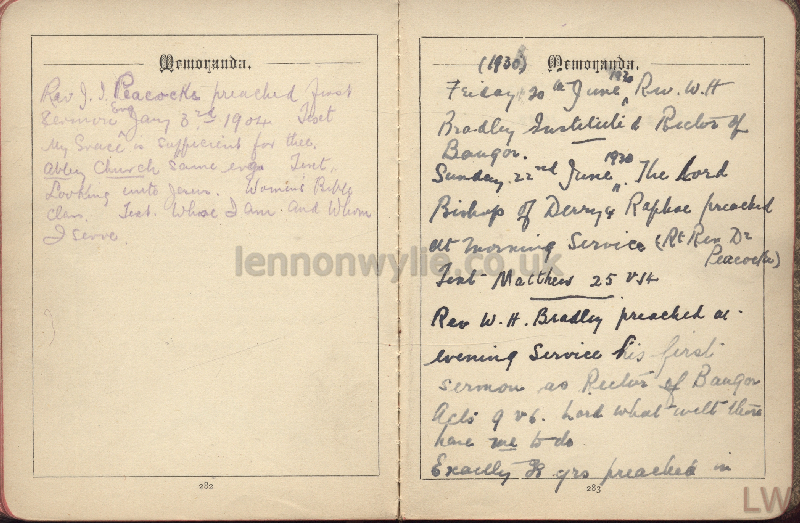 Memoranda.
Rev J. I. Peacocke preached first
Sermon Evg Jany 3rd 1904 Text
My Grace is sufficient for thee.
Abbey Church same evg Text.
Looking unto Jesus. Women's Bible
Class. Text. Whose I am and Whom
I serve.
282
(1930) Memoranda.
Friday 20th June 1930 Rev. W. H
Bradley Instituted Rector of
Bangor.
Sunday 22nd June 1930 The Lord
Bishop of Derry & Raphoe preached
at morning Service (Rt Rev Dr
Peacocke)
Text Matthew 25 v
Rev W. H. Bradley preached at
evening Service his first
sermon as Rector of Bangor
Acts 9 v 6. Lord what wilt thou
have me to do
Exactly yrs preached in
283
lennonwylie.co.uk
LW